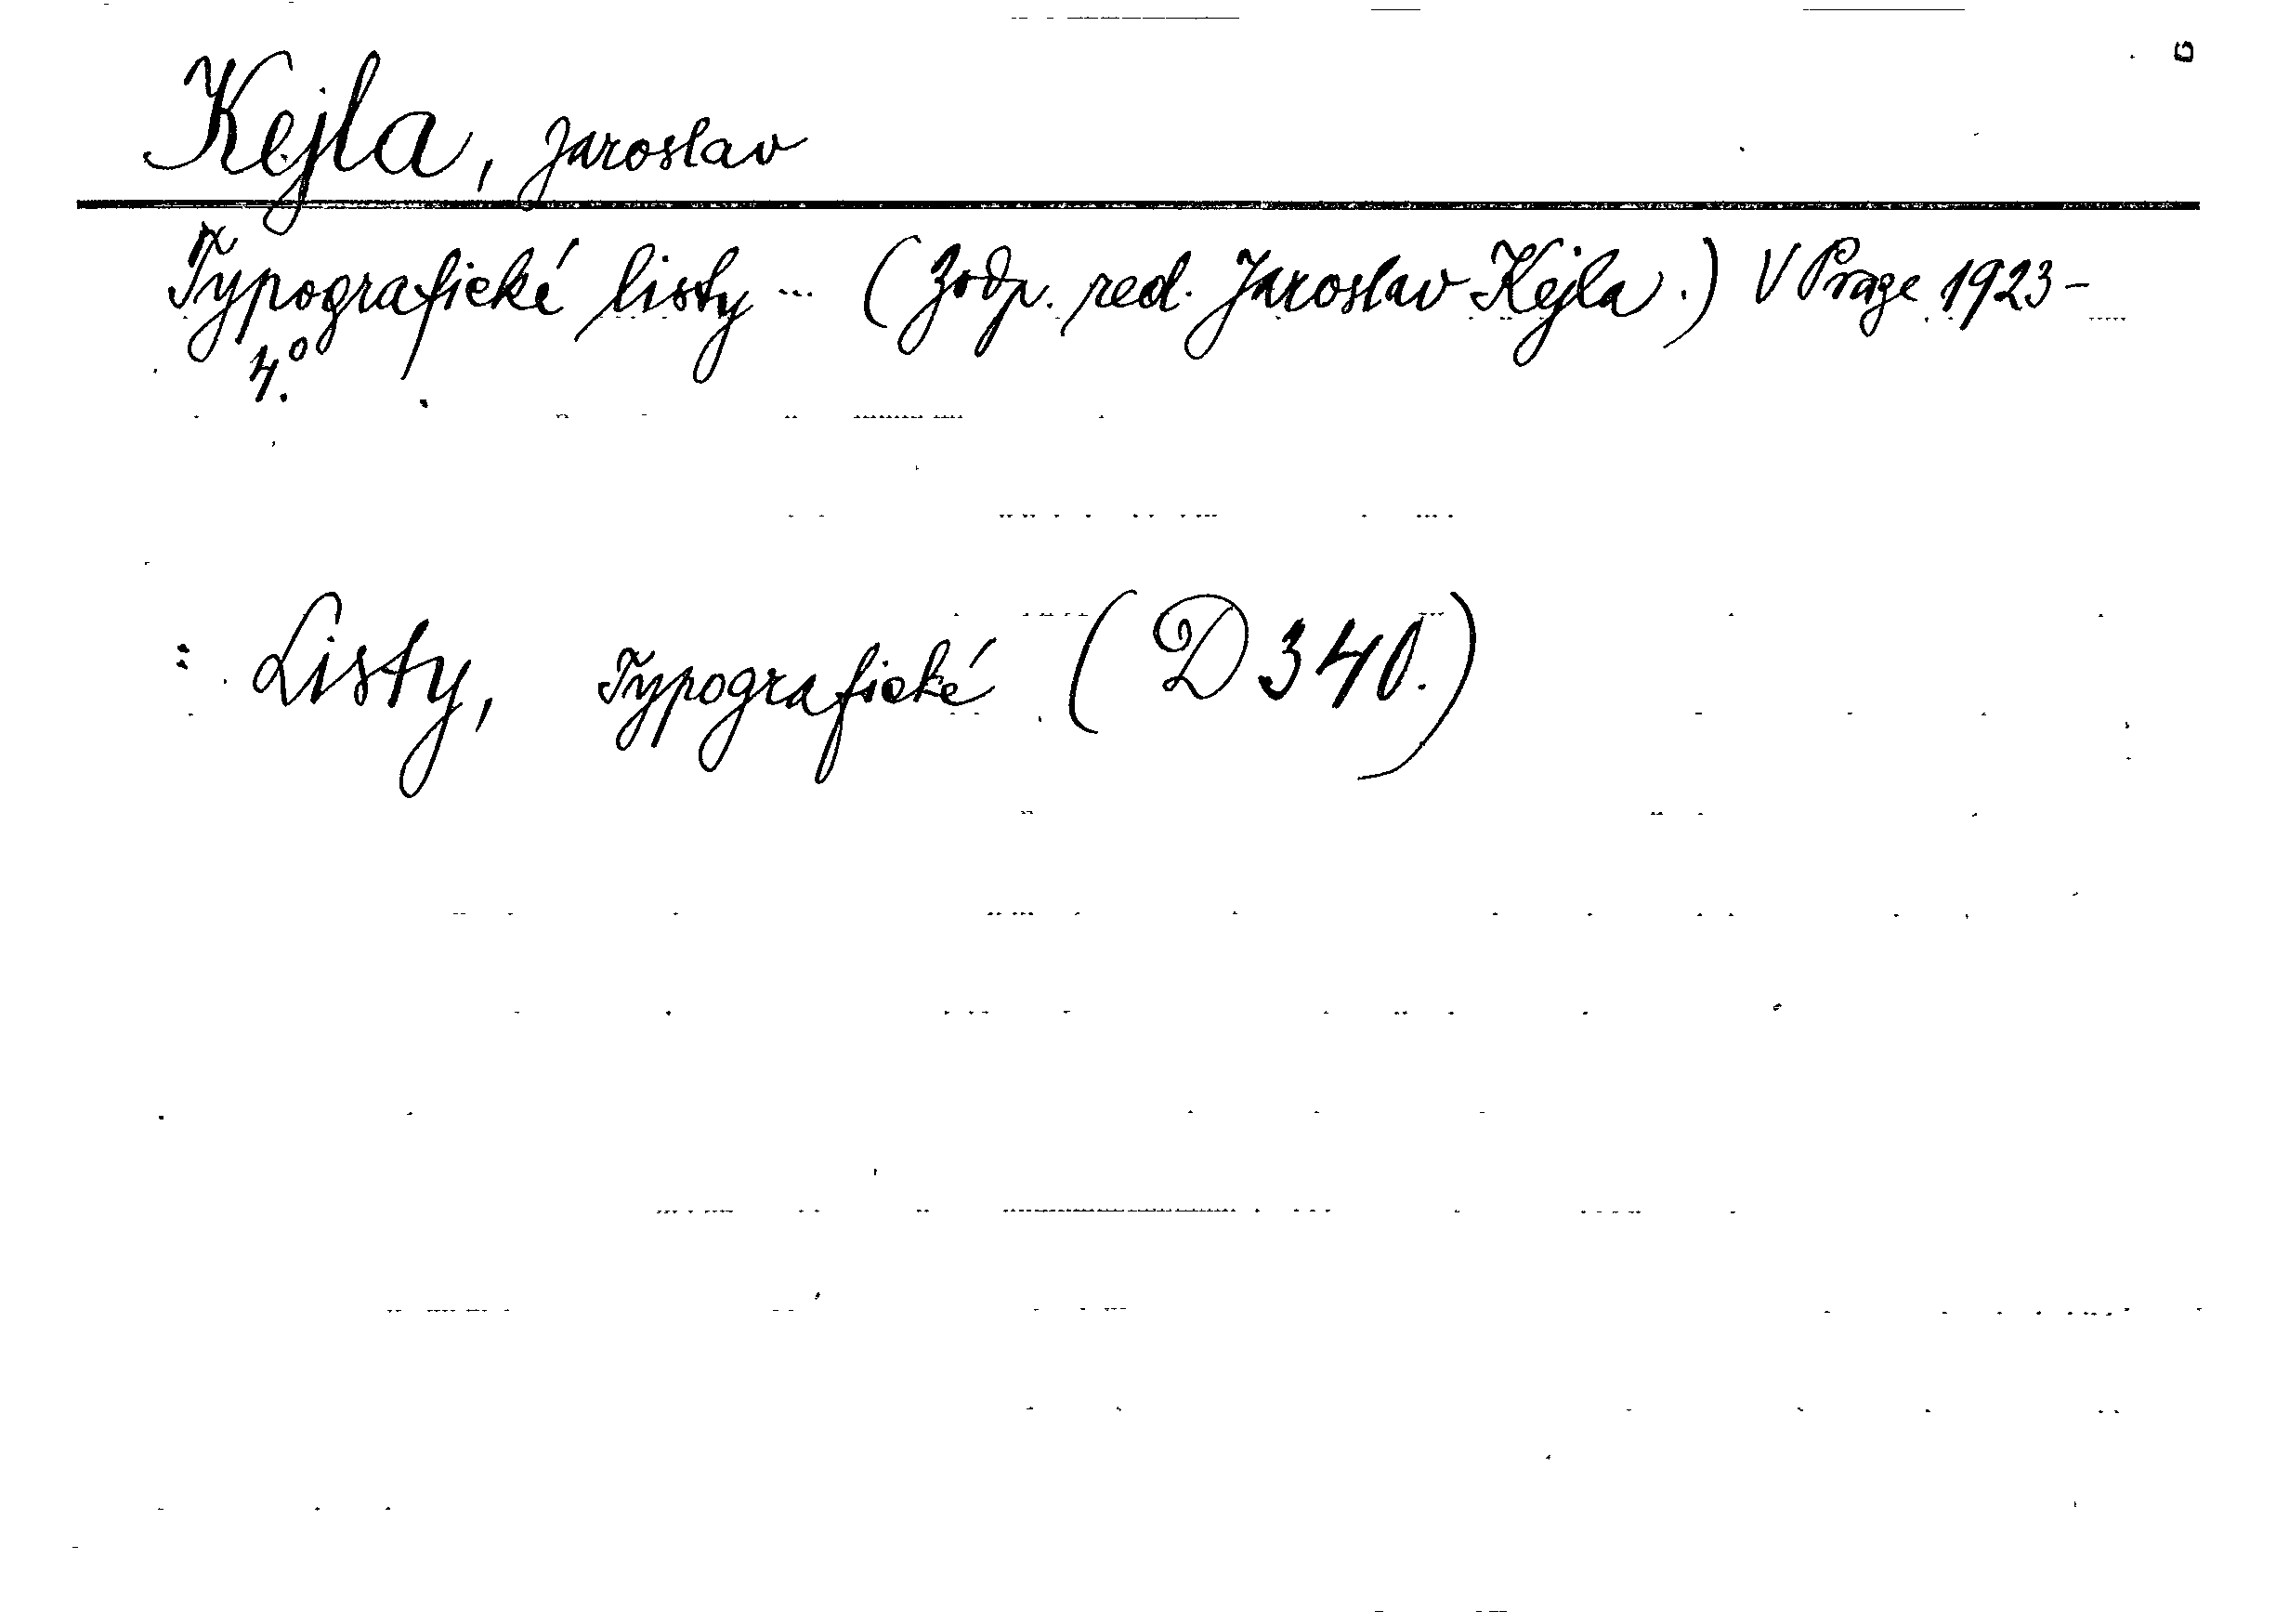 Kejla, Jaroslav
Typografické listy ... (Zodp. red. Jaroslav Kejla.) V Praze 1923-
4.°
: Listy, Typografické (D 340.)